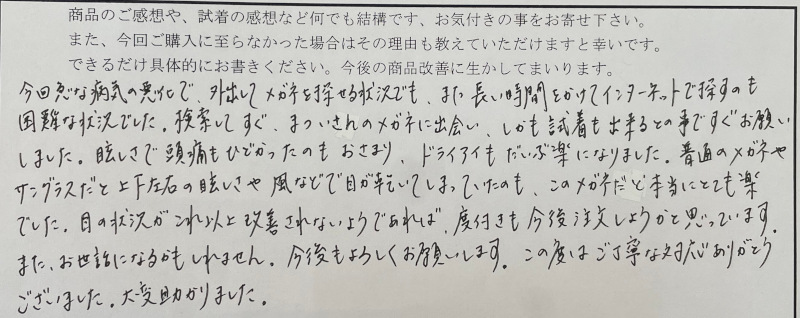 商品のご感想や、試着の感想など何でも結構です、お気付きの事をお寄せ下さい。
また、今回ご購入に至らなかった場合はその理由も教えていただけますと幸いです。
できるだけ具体的にお書きください。今後の商品改善に生かしてまいります。
今回急な病気の悪化で、外出してメガネを探せる状況でも、また長い時間をかけてインターネットで探すのも
困難な状況でした。検索してすぐ、まついさんのメガネに出会い、しかも試着も出来るとの事ですぐお願い
しました。眩しさで頭痛もひどかったのもおさまり、ドライアイもだいぶ楽になりました。普通のメガネや
サングラスだと上下左右の眩しさや風などで目が乾いてしまっていたのも、このメガネだと本当にとても楽
でした。目の状況がこれ以上改善されないようであれば、度付きも今後注文しようかと思っています。
また、お世話になるかもしれません。今後もよろしくお願いします。この度はご丁寧な対応ありがとう
ございました。大変助かりました。